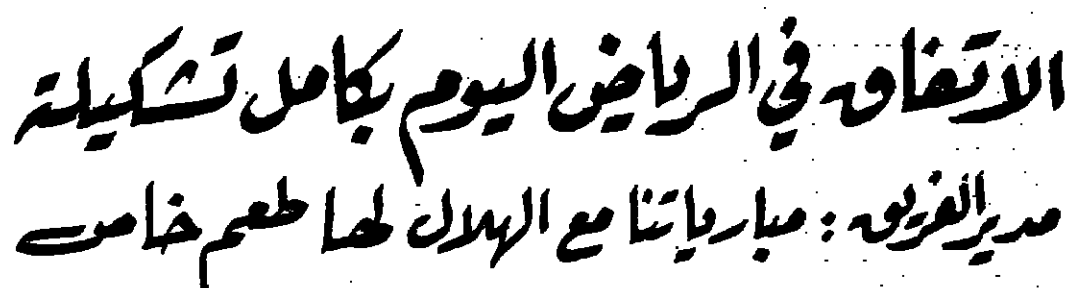 الاتفاق في الرياض اليوم بكامل تشكيلة
مدير الفريق : مبارياتنا مع الهلال لها طعم خاص